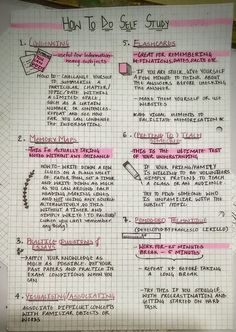 HOW TO DO SELF STUDY
1. CONDENSING
- useful for information-
heavy subjects
HOW TO - CHALLENGE YOURSELF
TO SUMMARISE A
PARTICULAR CHAPTER/
TOPIC/TEXT ONTO
A LIMITED SPACE
SUCH AS A CERTAIN
NUMBER OF SENTENCES.
REPEAT AND SEE HOW
FAR YOU CAN CONDENSE
THE INFORMATION.
2. MEMORY MAPS
THIS IS ACTUALLY TAKING
NOTES WITHOUT ANY GUIDANCE!
HOW TO - WRITE DOWN A FEW
CLUES ON A PLAIN SHEET
OF PAPER. THEN, SET A TIMER
AND WRITE DOWN AS MUCH
AS YOU CAN AROUND IT
AND NOT USING ANY SOURCE
ALTERNATIVELY, DO THIS
WITHOUT A TIMER AND
SIMPLY WRITE! TO RAISE
(WHEN YOU CAN'T REMEMBER
ANY MORE)
3. PRACTISE QUESTIONS/
ESSAYS
- APPLY YOUR KNOWLEDGE AS
MUCH AS POSSIBLE. BUY YOUR
PAST PAPERS AND PRACTISE IN
EXAM CONDITIONS WHEN YOU
CAN
4. VISUALISING/ASSOCIATING
ASSOCIATE DIFFICULT CONCEPTS
WITH FAMILIAR OBJECTS OR
WORDS
5. FLASHCARDS
- GREAT FOR REMEMBERING
DEFINATIONS, DATES, FACTS ETC
- IF YOU ARE STUCK, GIVE YOURSELF
A FEW MINUTES TO THINK ABOUT
THE ANSWERS BEFORE CHECKING
THE ANSWER.
- MAKE THEM YOURSELF OR USE
WEBSITES
- ADD VISUAL ELEMENTS TO
FACILITATE MEMORISATION
6. (PRETEND TO) TEACH
SOMEONE
- THIS IS THE ULTIMATE TEST
OF YOUR UNDERSTANDING
- IF YOUR FRIEND/FAMILY
IS WILLING TO DO VOLUNTEERS
OR SIMPLY PRETEND TO TEACH
A CLASS OR AN AUDIENCE
- TRY TO FIND SOMEONE WHO
IS UNFAMILIAR WITH THE
SUBJECT MATTER
7. POMODORO TECHNIQUE
(DEVELOPED BY FRANCESCO CIRILLO)
WORK FOR - 25 MINUTES
BREAK - 5 MINUTES
- REPEAT x4 BEFORE TAKING
A LONG BREAK
- TRY THIS IF YOU STRUGGLE
WITH PROCRASTINATION AND
GETTING STARTED ON HARD
TASK